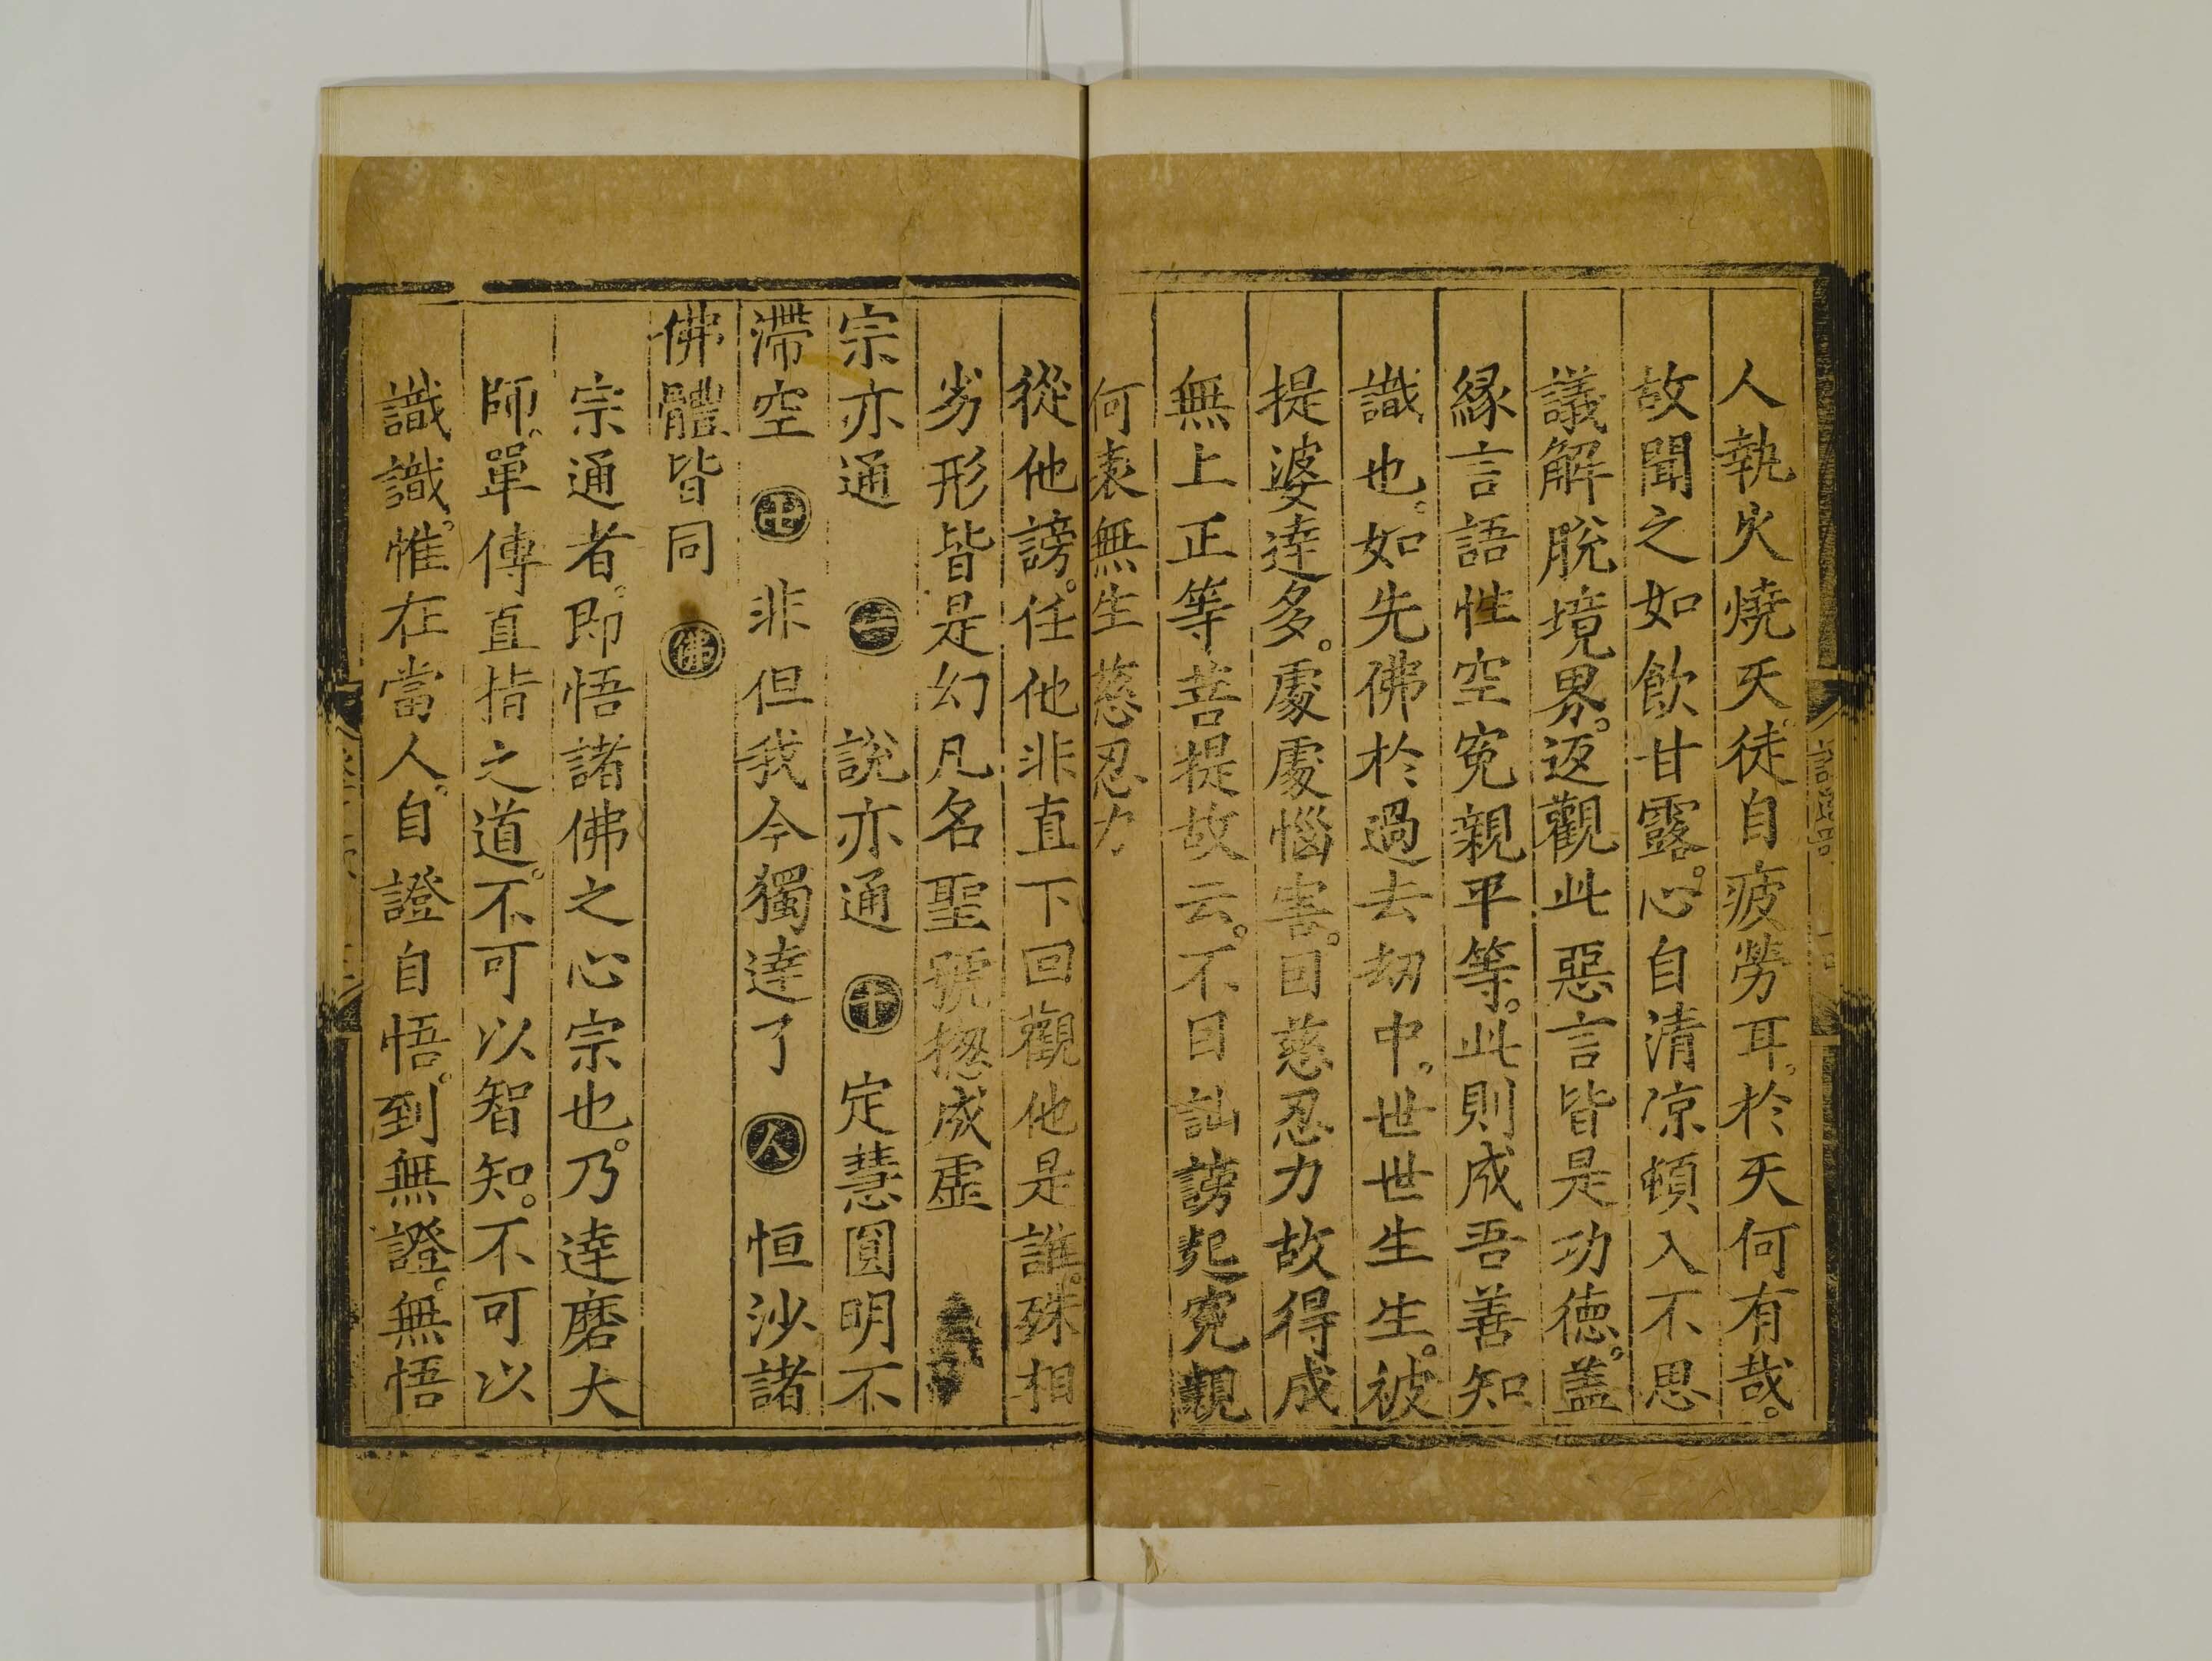 人執火燒天。徒自疲勞耳。於天何有哉。
故聞之如飲甘露。心自清凉頓入不思
議解脫境界。返觀此惡言皆是功德。盖
緣言語性空寃親平等。此則成吾善知
識也。如先佛於過去劫中。世世生生。彼
提婆達多。處處惱害。回慈忍力故得成
無上正等菩提故云。不因訕謗起寃親
何表無生慈忍力
從他謗。任他非直下回觀他是誰。殊相
劣形皆是幻凡名聖號揔成虛
宗亦通 說亦通 定慧圓明不
滯空 非但我今獨達了 人 恒沙諸
佛體皆同 佛
宗通者。即悟諸佛之心宗也。乃達磨大
師。單傳直指之道。不可以智知。不可以
識識。惟在當人。自證自悟。到無證。無悟